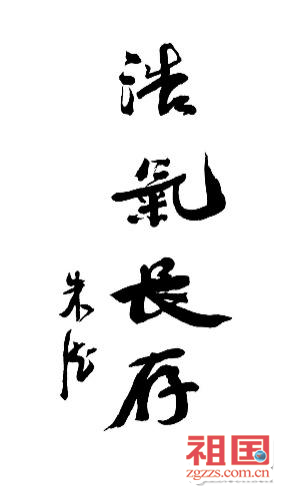 浩氣长存
朱德
祖国
zgzzs.com.cn